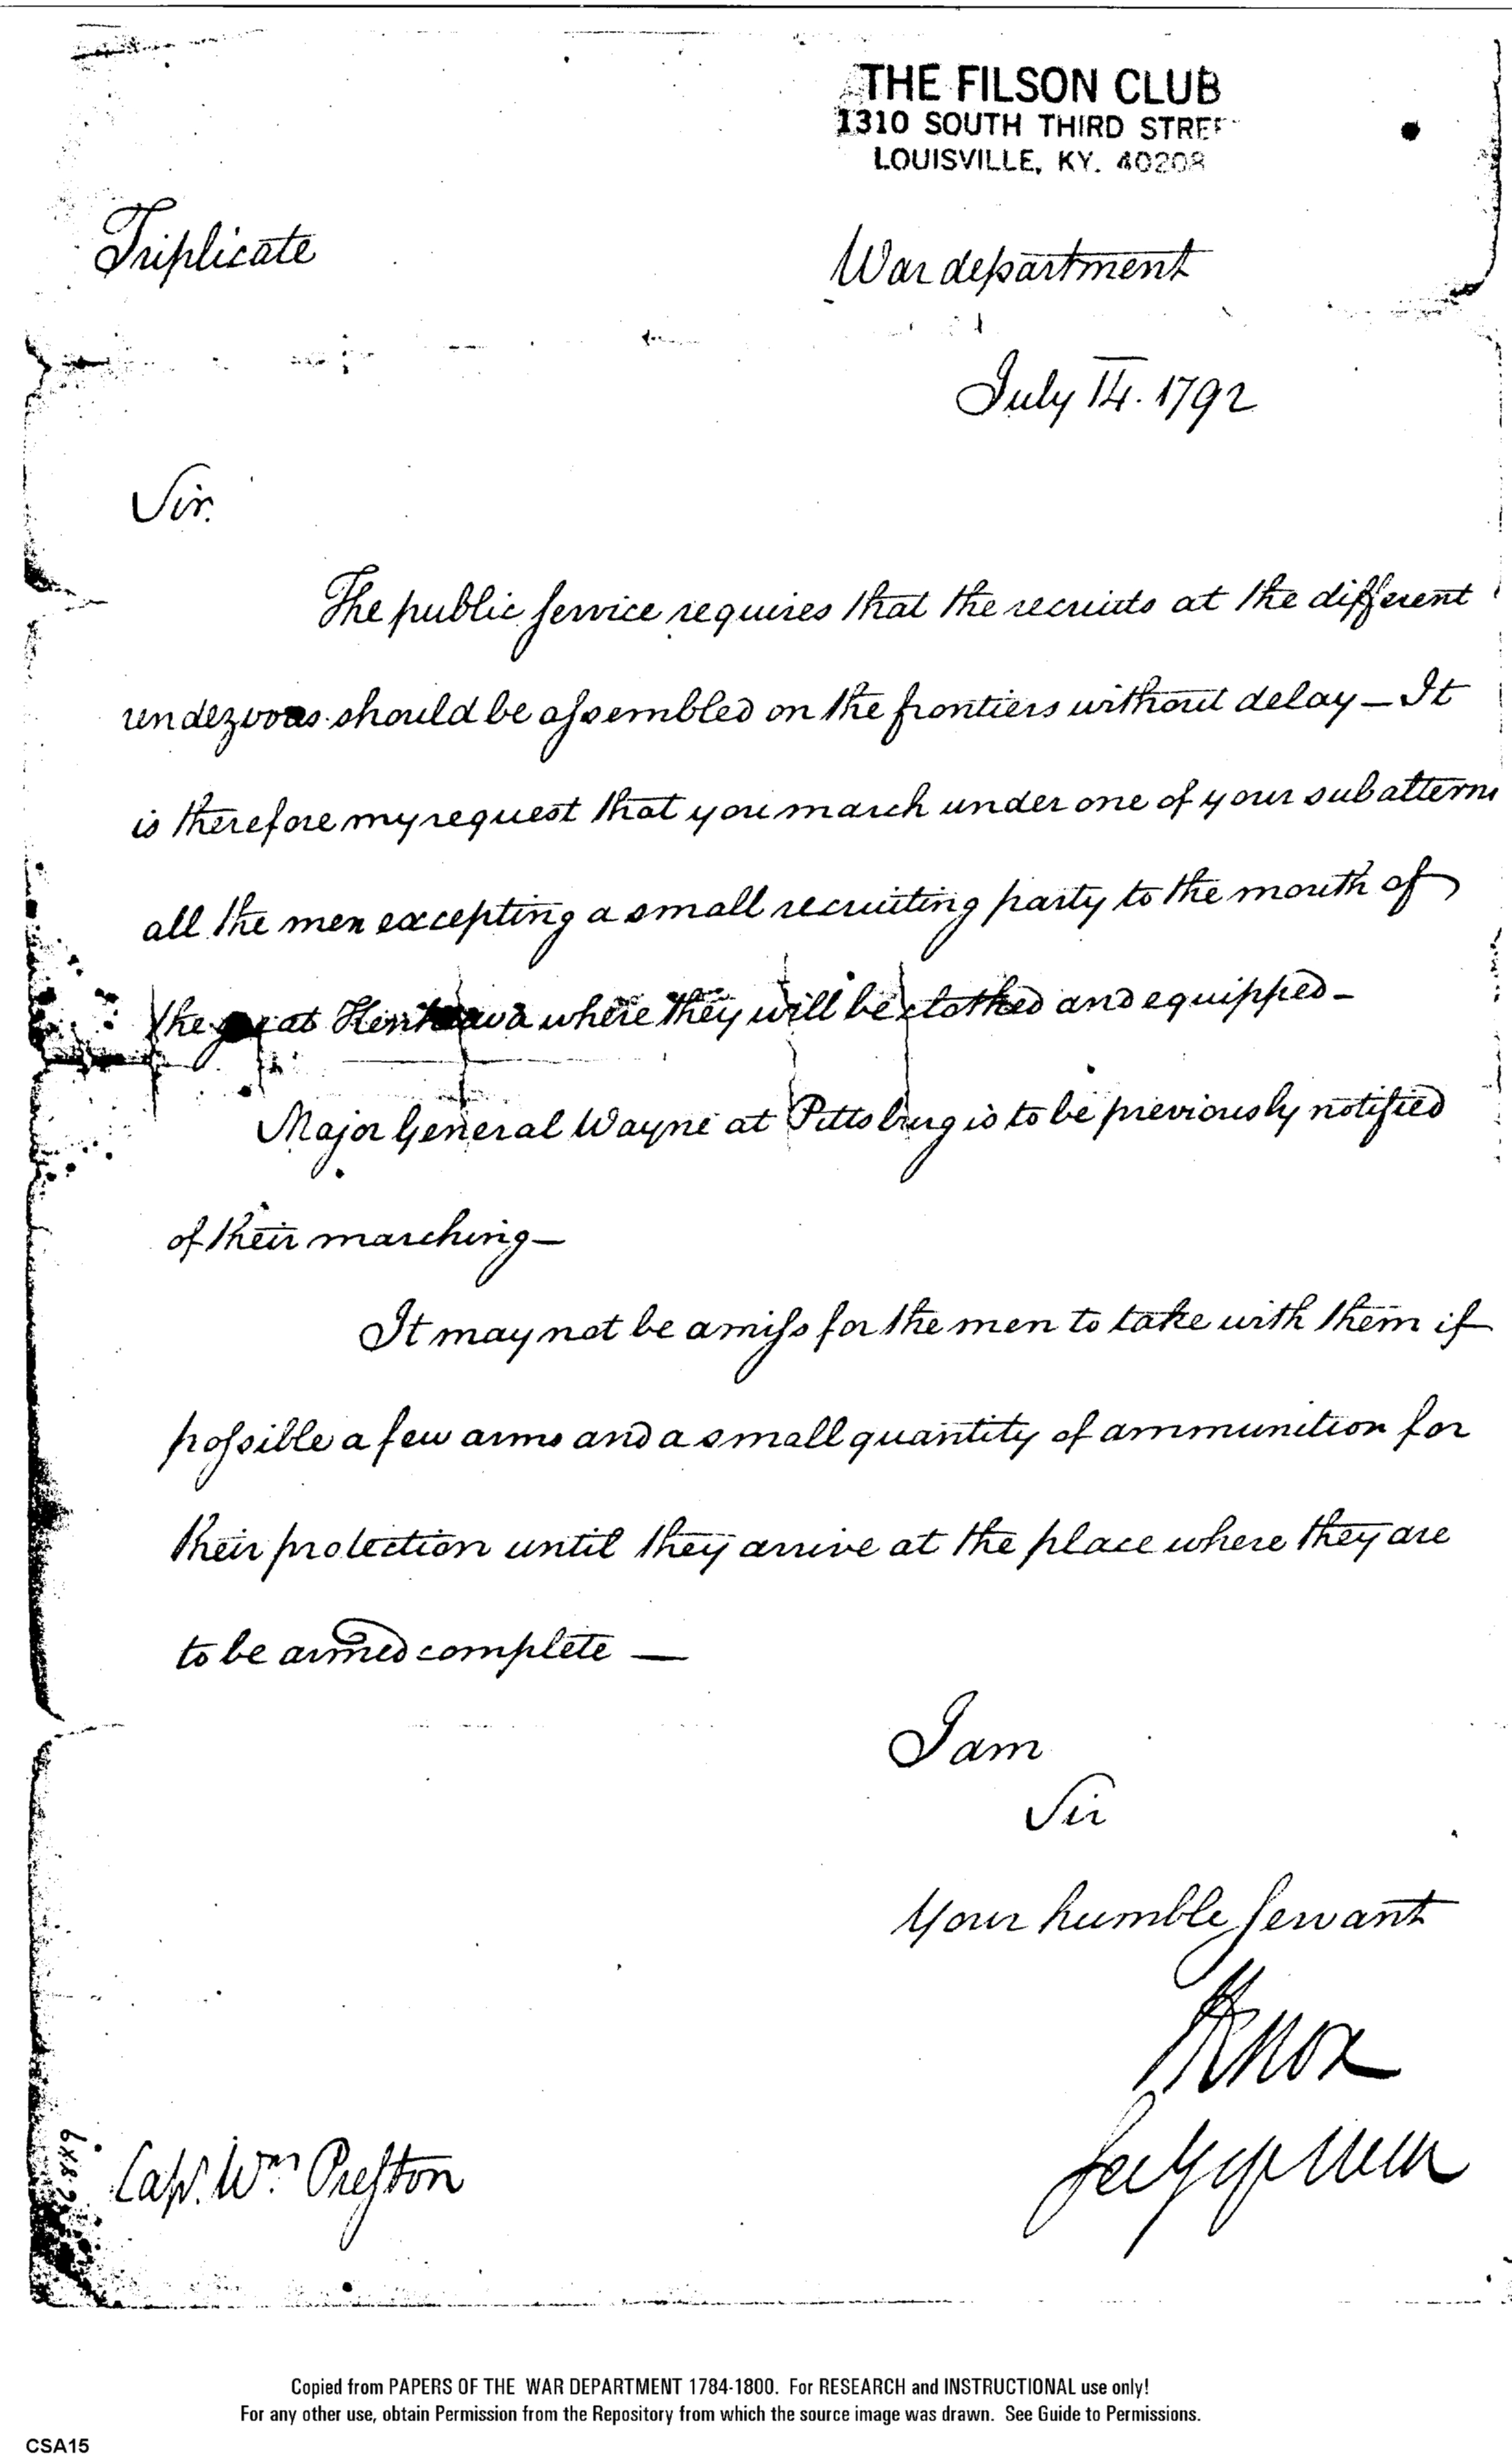 THE FILSON CLUB
1310 SOUTH THIRD STREET
LOUISVILLE, KY. 40208
Triplicate
War department
July 14. 1792
Sir.
The public service requires that the recruits at the different
rendezvous should be assembled on the frontiers without delay — It
is therefore my request that you march under one of your subalterns
all the men excepting a small recruiting party to the mouth of
the great Kenhawa where they will be clothed and equipped —
Major General Wayne at Pittsburg is to be previously notified
of their marching —
It may not be amiss for the men to take with them if
possible a few arms and a small quantity of ammunition for
their protection until they arrive at the place where they are
to be armed complete —
I am
Sir
Your humble servant
HKnox
Secy of War
Cap. Wm Preston
Copied from PAPERS OF THE WAR DEPARTMENT 1784-1800. For RESEARCH and INSTRUCTIONAL use only!
For any other use, obtain Permission from the Repository from which the source image was drawn. See Guide to Permissions.
CSA15